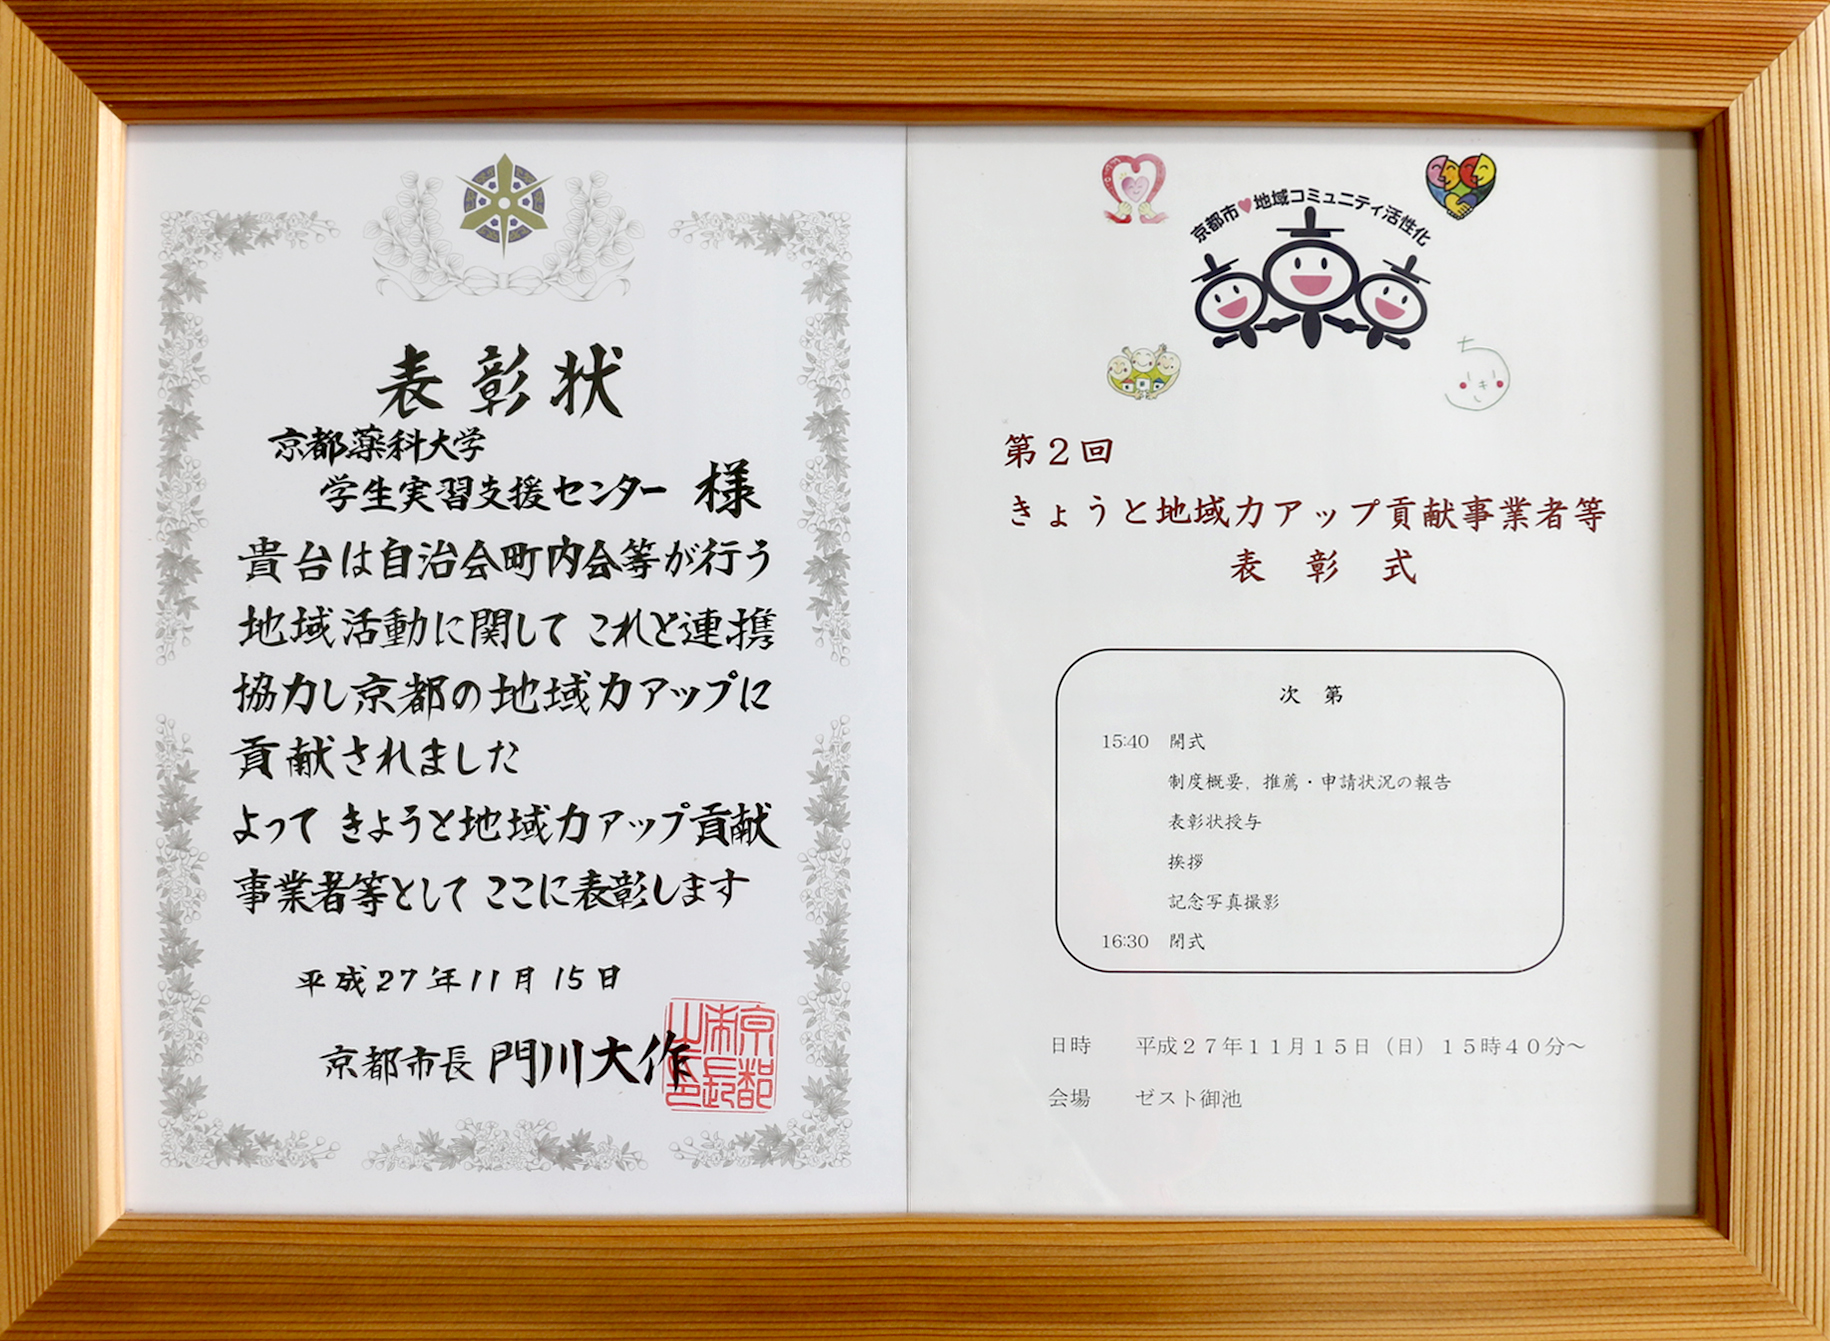 表彰状
京都薬科大学
学生実習支援センター 様
貴台は自治会町内会等が行う
地域活動に関して これと連携
協力し京都の地域力アップに
貢献されました
よって きょうと地域力アップ貢献
事業者等として ここに表彰します
平成27年11月15日
京都市長 門川大作
京都市♥地域コミュニティ活性化
ちキ
第2回
きょうと地域力アップ貢献事業者等
表 彰 式
次 第
15:40 開式
制度概要，推薦・申請状況の報告
表彰状授与
挨拶
記念写真撮影
16:30 閉式
日時 平成２７年１１月１５日（日）１５時４０分～
会場 ゼスト御池